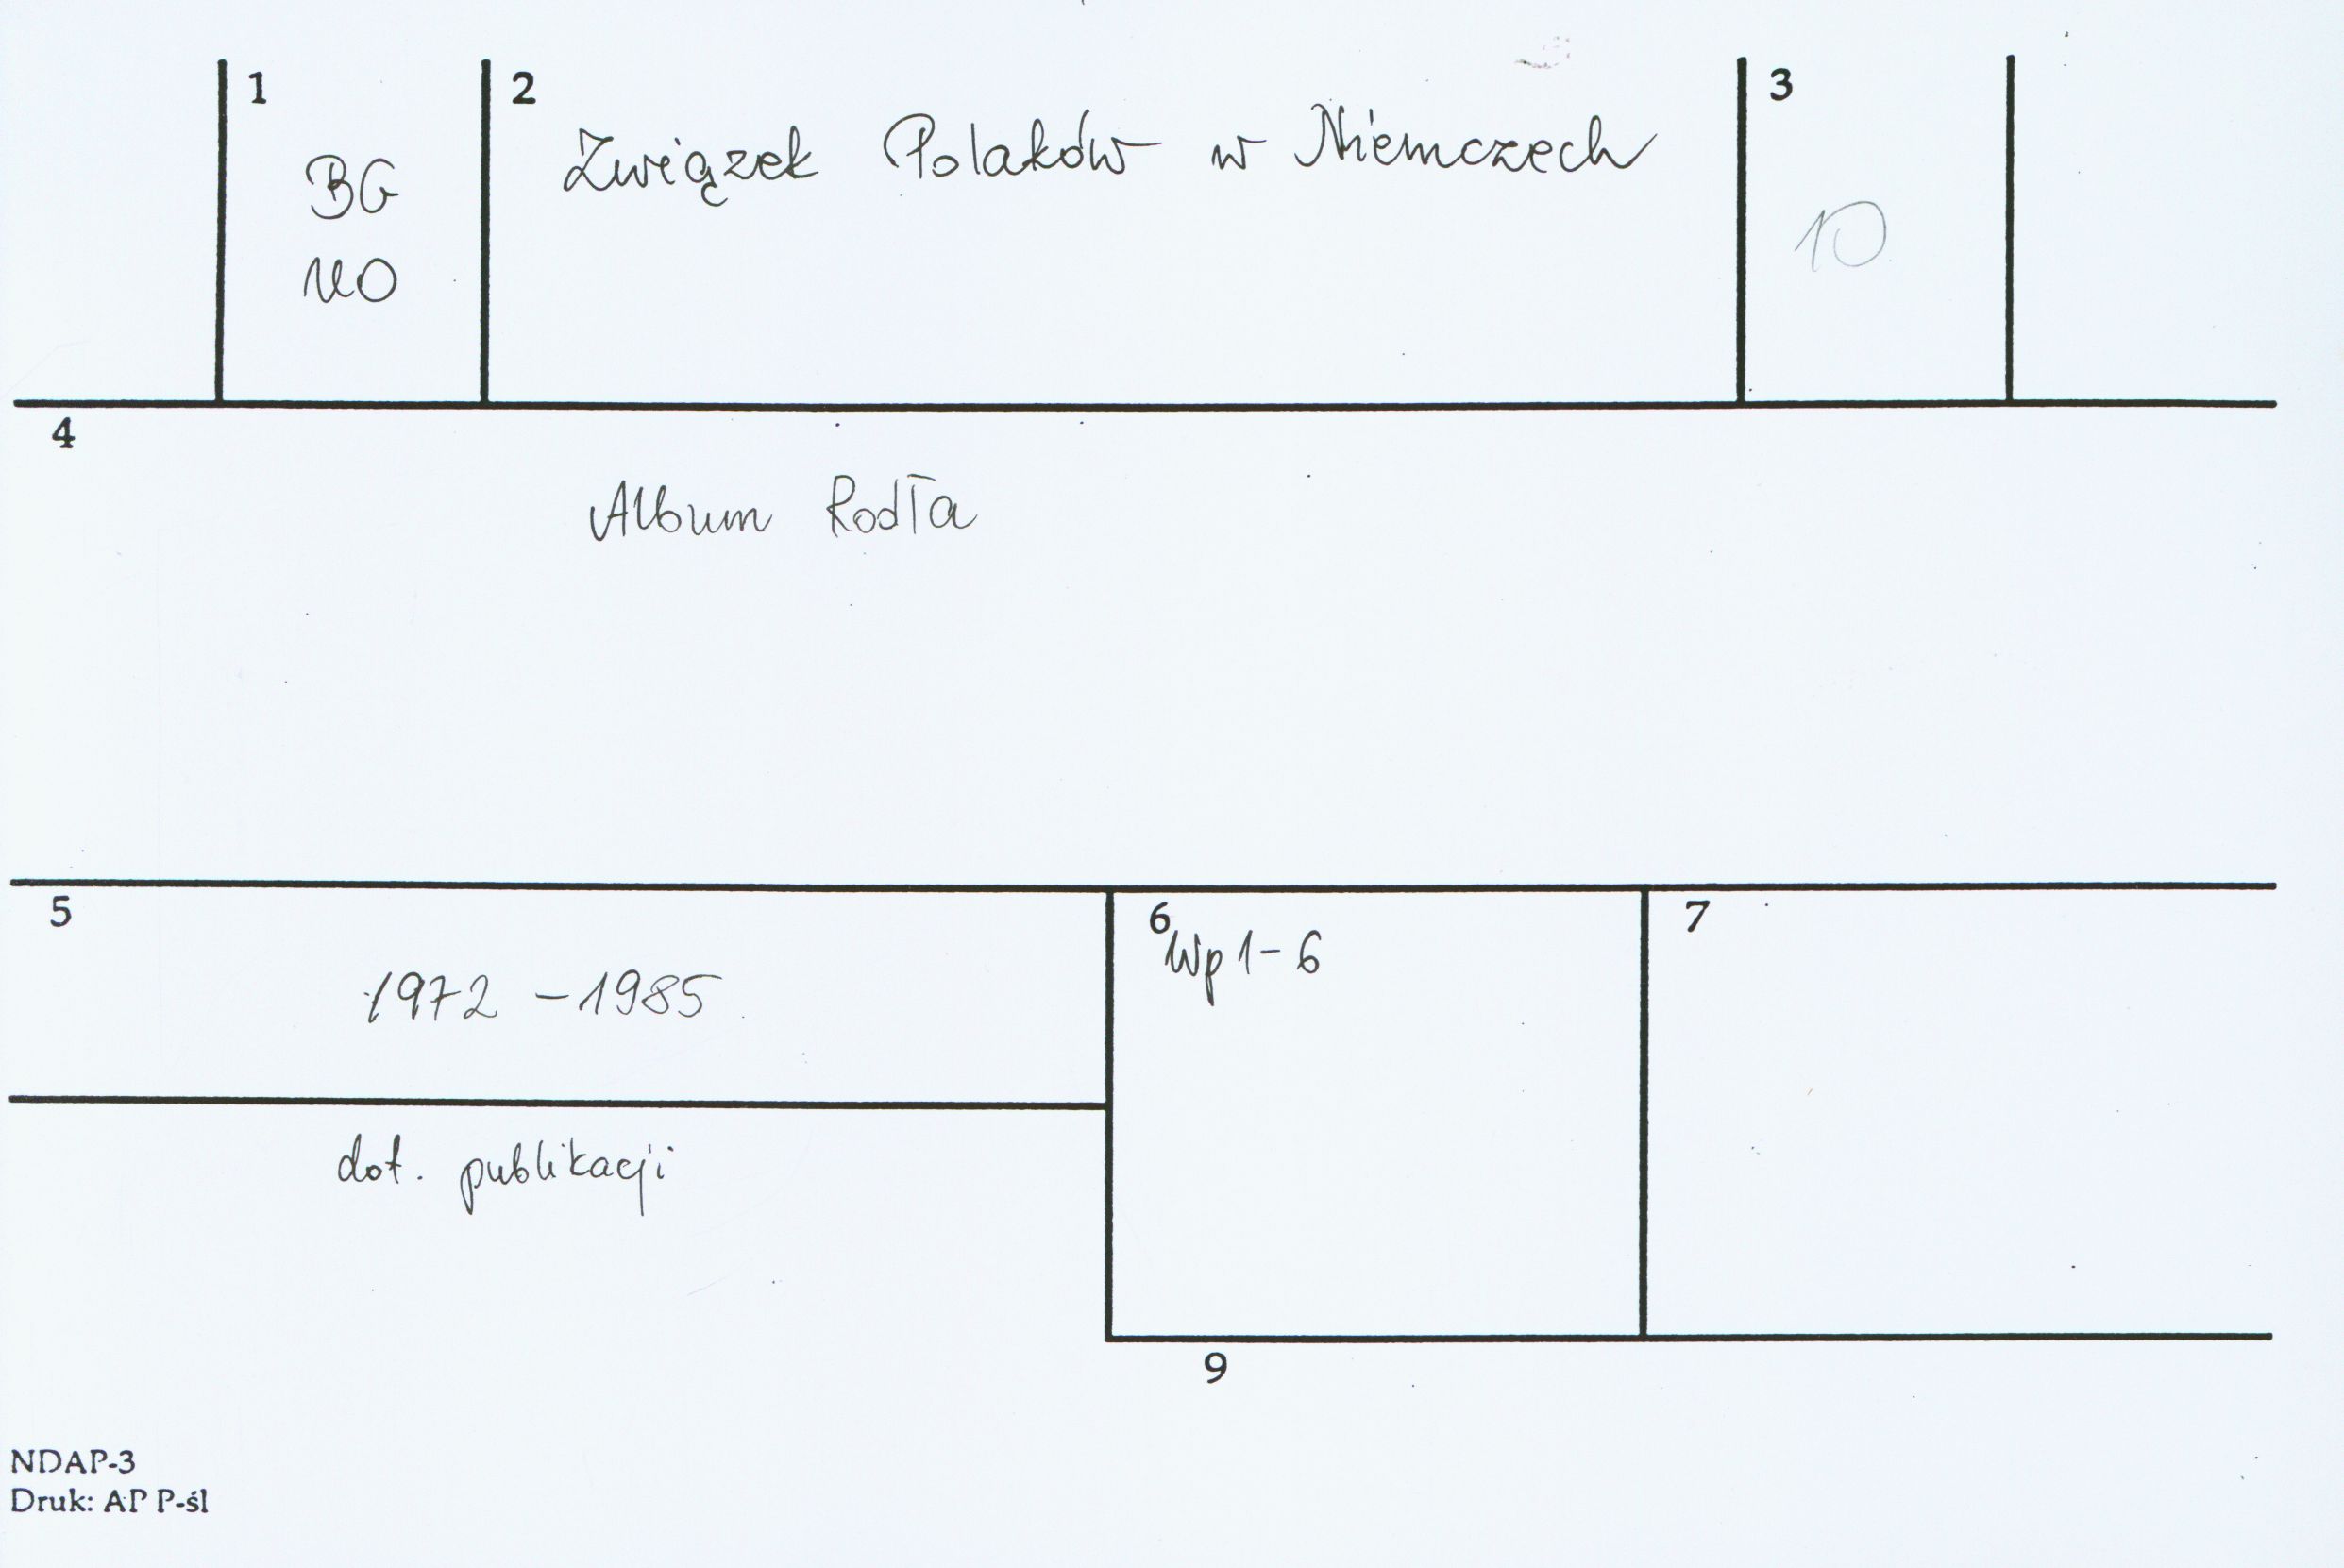 1
BG
UO
2
Związek Polaków w Niemczech
3
10
4
Album Rodła
5
1972 - 1985
6
Wp 1 - 6
7
dot. publikacji
9
NDAP-3
Druk: AP P-śl